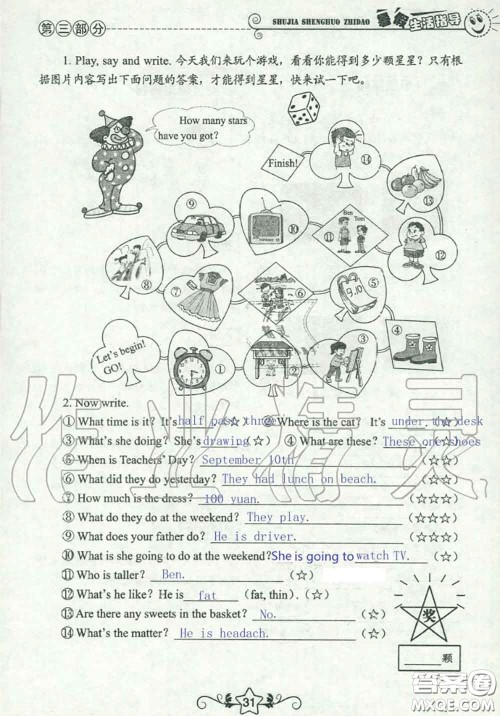 第三部分
SHUJIA SHENGHUO ZHIDAO
暑假生活指导
1. Play, say and write. 今天我们来玩个游戏，看看你能得到多少颗星星？只有根
据图片内容写出下面问题的答案，才能得到星星，快来试一下吧。
How many stars
have you got?
Finish!
⑭
⑬
⑨
⑩
Ben Tom
⑪
⑫
⑧
⑦
⑥
9.10
⑤
④
Let's begin!
GO!
①
②
③
2. Now write.
① What time is it? It's half past three (☆) ② Where is the cat? It's under the desk
③ What's she doing? She's drawing (☆) ④ What are these? These one shoes
⑤ When is Teachers' Day? September 10th. (☆☆)
⑥ What did they do yesterday? They had lunch on beach. (☆☆☆)
⑦ How much is the dress? 100 yuan. (☆☆)
⑧ What do they do at the weekend? They play. (☆☆☆)
⑨ What does your father do? He is driver. (☆☆)
⑩ What is she going to do at the weekend? She is going to watch TV. (☆☆☆)
⑪ Who is taller? Ben. (☆)
⑫ What's he like? He is fat (fat, thin). (☆)
⑬ Are there any sweets in the basket? No. (☆)
⑭ What's the matter? He is headach. (☆☆)
奖
颗
31
作业精灵
答案圈
MXQE.COM